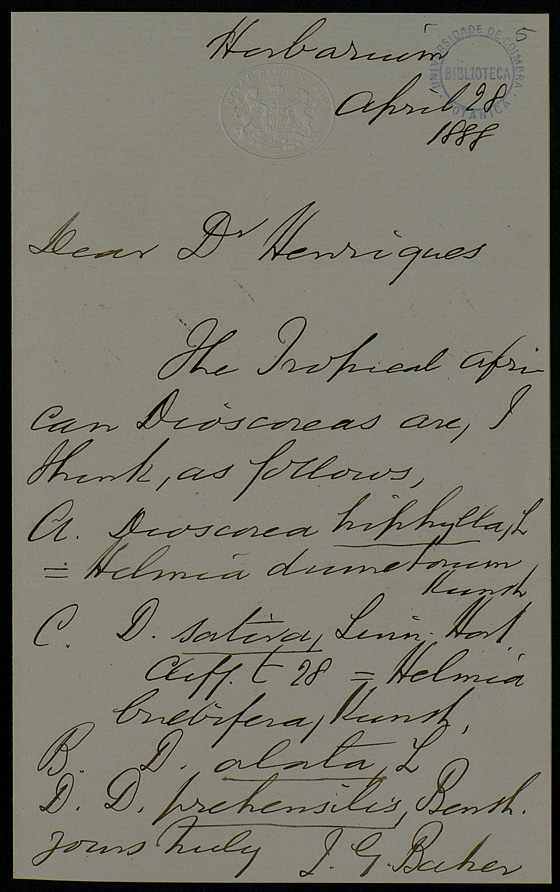 Herbarium
5
UNIVERSIDADE DE COIMBRA
BIBLIOTECA
BOTANICA
April 28
1888
Dear Dr Henriques
The Tropical Afri
can Dioscoreas are, I
think, as follows,
A. Dioscorea triphylla, L
= Helmia dumetorum
Kunth
C. D. sativa, Linn. Hort
Cliff. t 28 = Helmia
bulbifera, Kunth,
B. D. alata, L
D. D. prehensilis, Benth.
Yours truly J. G. Baker